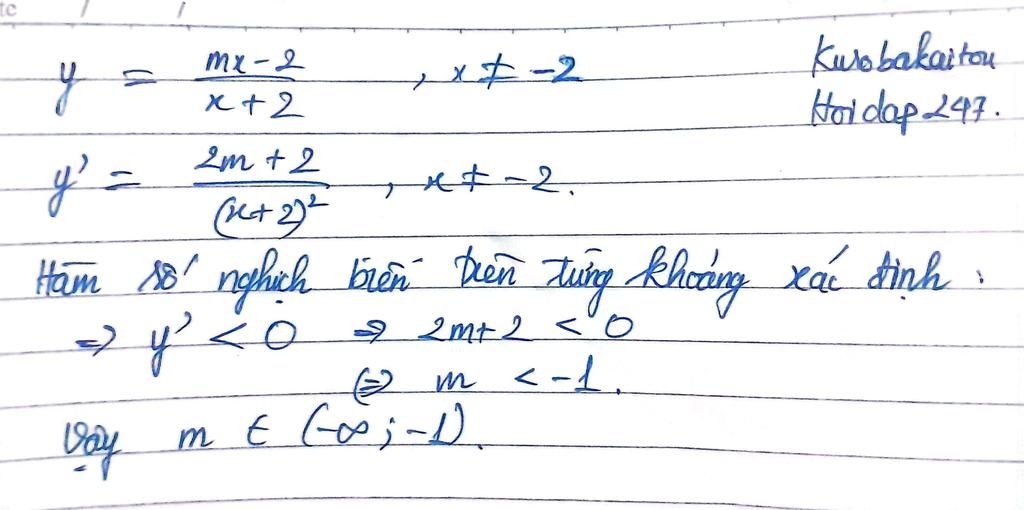 y = \frac{mx-2}{x+2} , x ≠ -2
Kurobakaitou
Hoidap247.
y' = \frac{2m+2}{(x+2)^2} , x ≠ -2.
Hàm số nghịch biến trên từng khoảng xác định :
=> y' < 0 => 2m+2 < 0
<=> m < -1.
Vậy m ∈ (-∞ ; -1).